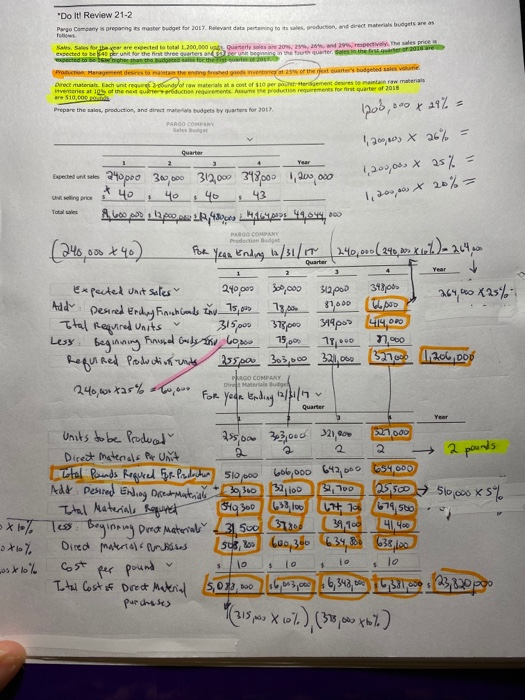 *Do It! Review 21-2
Pargo Company is preparing its master budget for 2017. Relevant data pertaining to its sales, production, and direct materials budgets are as
follows.
Sales. Sales for the year are expected to total 1,200,000 units. Quarterly sales are 20%, 25%, 26%, and 29%, respectively. The sales price is
expected to be $40 per unit for the first three quarters and per unit beginning in the fourth quarter. Sales in the first quarter of 2018 are
expected to be higher than the budgeted sales for the first quarter of 2017.
Production. Management desires to maintain the ending finished goods inventories at 25% of the next quarter's budgeted sales volume.
Direct materials. Each unit requires 2 pounds of raw materials at a cost of $10 per pound. Management desires to maintain raw materials
inventories at 10% of the next quarter's production requirements. Assume the production requirements for first quarter of 2018
are 510,000 pounds.
Prepare the sales, production, and direct materials budgets by quarters for 2017.
1,200,000 x 29% =
1,200,000 x 26% =
1,200,000 x 25% =
1,200,000 x 20% =
PARGO COMPANY
Sales Budget
Quarter
1 2 3 4 Year
Expected unit sales 240,000 300,000 312,000 348,000 1,200,000
Unit selling price * 40 40 40 43
Total sales
PARGO COMPANY
Production Budget
(240,000 x 40) For Year Ending 12/31/17
Quarter
1 2 3 4 Year
Expected Unit Sales 240,000 300,000 312,000 348,000
264,000 x 25%
Add: Desired Ending Finish Goods Inv 75,000 78,000 87,000 66,000
Total Required Units 315,000 378,000 399,000 414,000
Less: Beginning Finished Goods Inv 60,000 75,000 78,000 87,000
Required Production units 255,000 303,000 321,000 327,000 1,206,000
240,000 x 25% = 60,000
PARGO COMPANY
Direct Materials Budget
For Year Ending 12/31/17
Quarter
Year
Units to be Produced 255,000 303,000 321,000 327,000
Direct Materials Per Unit 2 2 2 2 → 2 pounds
Total Pounds Required For Production 510,000 606,000 642,000 654,000
Add: Desired Ending Direct Materials + 30,300 32,100 32,700 25,500 → 510,000 x 5%
Total Materials Required 638,100 679,500
Less: Beginning Direct Materials 31,500 37,800 39,900 41,400
Direct Materials Purchases 508,800 600,300 634,800 638,100
Cost per pound $ 10 $ 10 $ 10 $ 10
Total Cost of Direct Material
purchases
(315,000 x 10%), (378,000 x 10%)